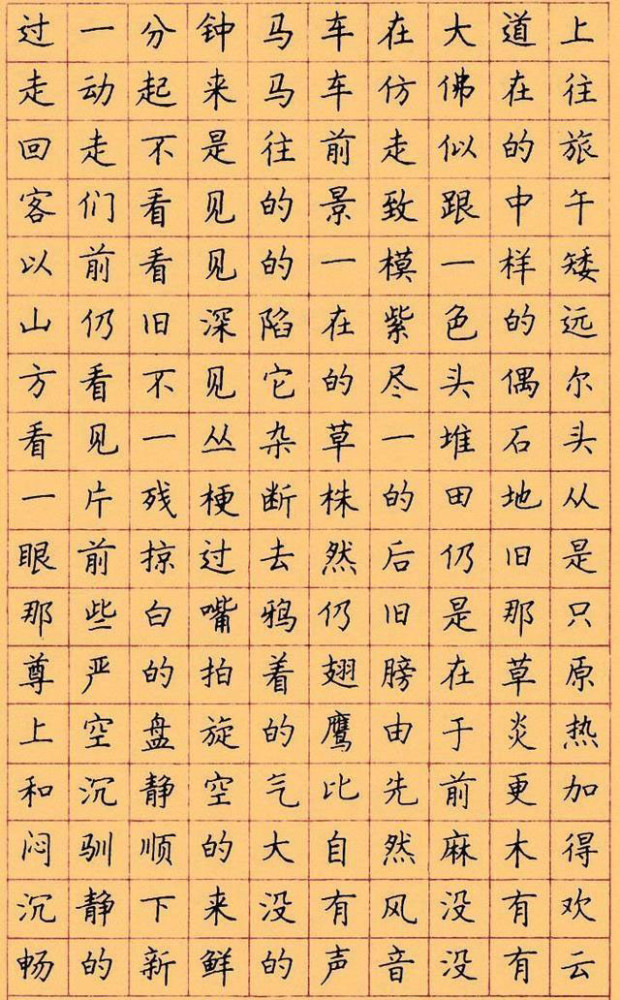 过一分钟马车在大道上
走动起来马车仿佛在往
回走不是往前走似的旅
客们看见的景致跟中午
以前看见的一模一样矮
山仍旧深陷在紫色的远
方看不见它的尽头偶尔
看见一丛杂草一堆石头
一片残梗断株的田地从
眼前掠过去然后仍旧是
那些白嘴鸦仍旧是那只
尊严的拍着翅膀在草原
上空盘旋的鹰由于炎热
和沉静空气比先前更加
闷驯顺的大自然麻木得
沉静下来没有风没有欢
畅的新鲜的声音没有云